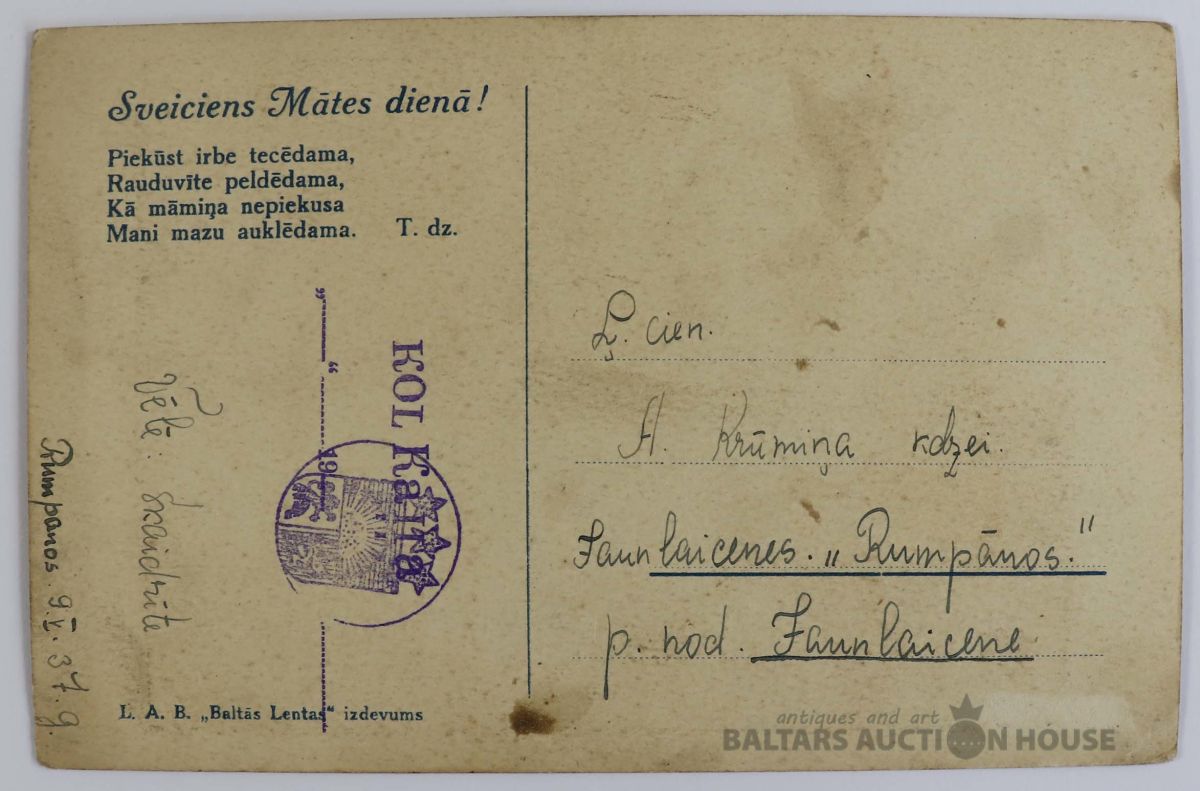 Sveiciens Mātes dienā!
Piekūst irbe tecēdama,
Rauduvīte peldēdama,
Kā māmiņa nepiekusa
Mani mazu auklēdama. T. dz.
KOL Ka
" "
19
Vēlē: Skaidrīte
Rumpanos. 9.V. 37.g.
L. A. B. „Baltās Lentas“ izdevums
Ļ. cien.
A. Krūmiņa kdzei.
Jaunlaicenes. „Rumpānos."
p. nod. Jaunlaicene
antiques and art
BALTARS AUCTION HOUSE